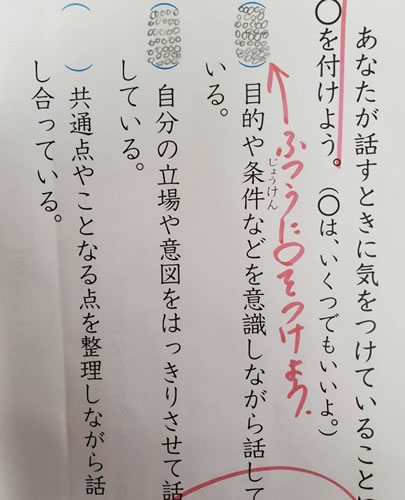 あなたが話すときに気をつけていること
〇を付けよう。(〇は、いくつでもいいよ。)
ふつうに〇をつけよう
( )目的や条件などを意識しながら話して
じょうけん
いる。
( )自分の立場や意図をはっきりさせて話
している。
( )共通点やことなる点を整理しながら話
し合っている。